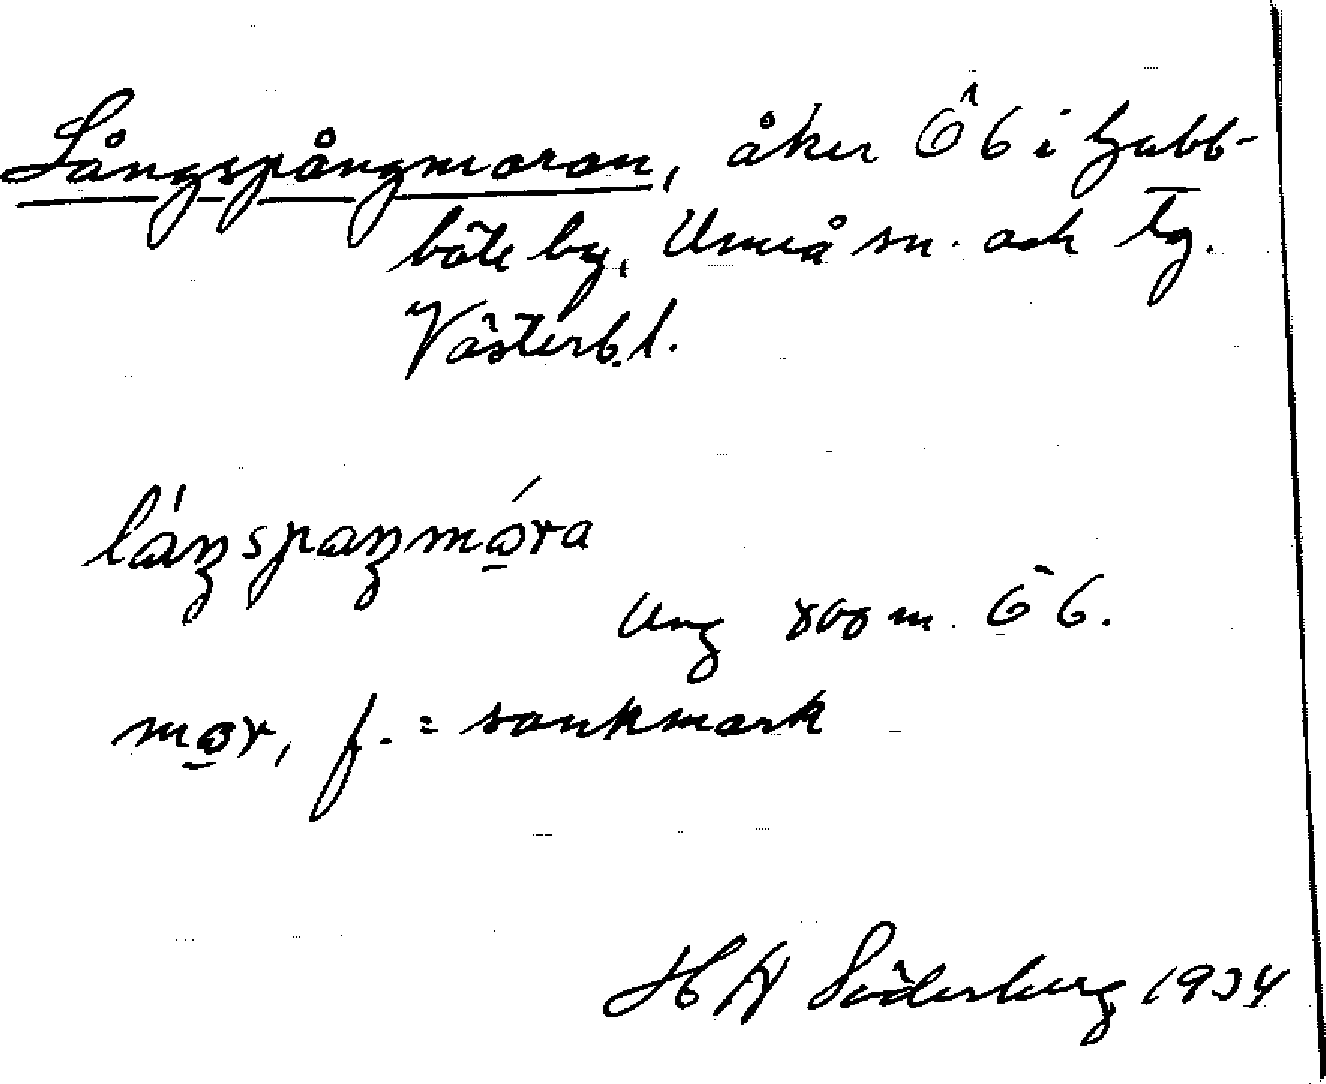 Långspångmoran, åker ÖB i Hjubb-
böle by, Umeå sn. och tg.
Västerb. l.
láŋspaŋmo̱ra
Ung 800 m. ÖB.
mo̱r, f. = sankmark
H W Söderberg 1934